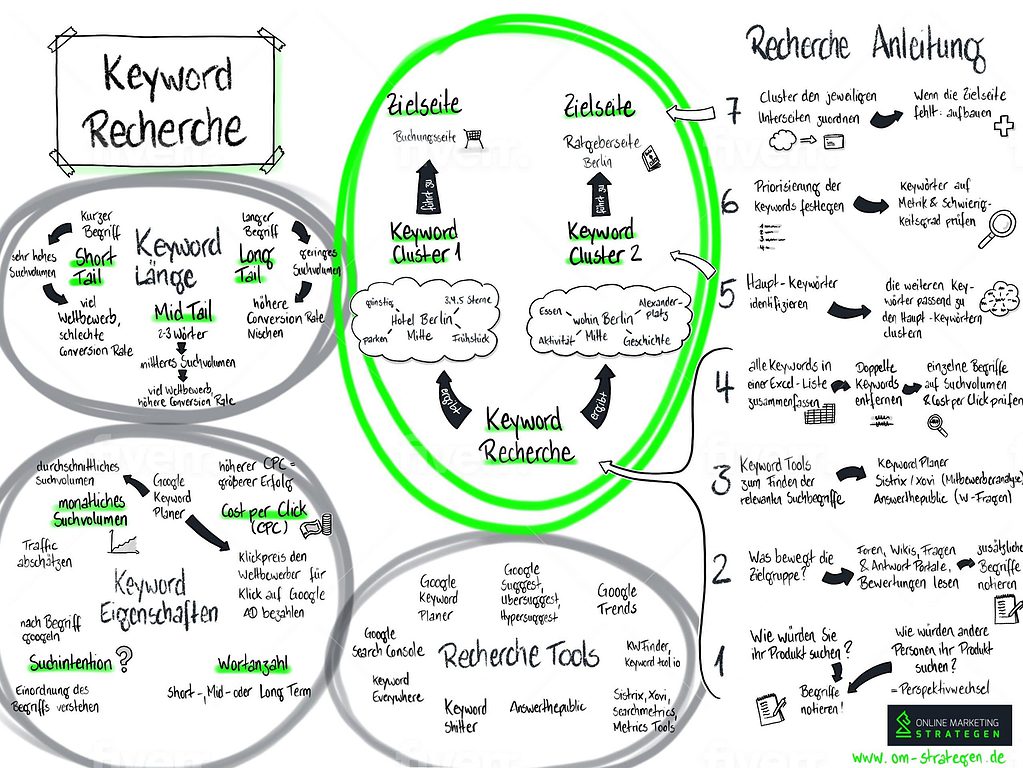 Keyword
Recherche
Kurzer
Begriff
sehr hohes
Suchvolumen
Short
Tail
viel
Wettbewerb,
schlechte
Conversion Rate
Keyword
Länge
Mid Tail
2-3 Wörter
mittleres Suchvolumen
viel Wettbewerb,
höhere Conversion Rate
Langer
Begriff
Long
Tail
geringes
Suchvolumen
höhere
Conversion Rate
Nischen
durchschnittliches
Suchvolumen
monatliches
Suchvolumen
Traffic
abschätzen
Google
Keyword
Planer
höherer CPC =
größerer Erfolg
Cost per Click
(CPC)
Klickpreis den
Wettbewerber für
Klick auf Google
AD bezahlen
Keyword
Eigenschaften
nach Begriff
googeln
Suchintention ?
Einordnung des
Begriffs verstehen
Wortanzahl
short-, Mid- oder Long Term
Zielseite
Buchungsseite
führt zu
Keyword
Cluster 1
günstig
3.4.5 Sterne
Hotel Berlin
Mitte
parken
Frühstück
Zielseite
Ratgeberseite
Berlin
führt zu
Keyword
Cluster 2
Essen
Alexander-
platz
wohin Berlin
Mitte
Aktivität
Geschichte
ergibt
ergibt
Keyword
Recherche
Google
Keyword
Planer
Google
Suggest,
Übersuggest,
Hypersuggest
Google
Trends
Google
Search Console
Recherche Tools
KWFinder,
Keyword tool io
Keyword
Everywhere
Keyword
Shitter
Answerthepublic
Sistrix, Xovi,
Searchmetrics,
Metrics Tools
Recherche Anleitung
7
Cluster den jeweiligen
Unterseiten zuordnen
Wenn die Zielseite
fehlt: aufbauen
6
Priorisierung der
Keywords festlegen
Keywörter auf
Metrik & Schwierig-
keitsgrad prüfen
5
Haupt-Keywörter
identifizieren
die weiteren Key-
wörter passend zu
den Haupt-Keywörtern
clustern
4
alle Keywords in
einer Excel-Liste
zusammenfassen
Doppelte
Keywords
entfernen
einzelne Begriffe
auf Suchvolumen
& Cost per Click prüfen
3
Keyword Tools
zum Finden der
relevanten Suchbegriffe
Keyword Planer
Sistrix / Xovi (Mitbewerberanalyse)
Answerthepublic (W-Fragen)
2
Was bewegt die
Zielgruppe?
Foren, Wikis, Fragen
& Antwort Portale,
Bewertungen lesen
zusätzliche
Begriffe
notieren
1
Wie würden Sie
ihr Produkt suchen?
Wie würden andere
Personen ihr Produkt
suchen?
= Perspektivwechsel
Begriffe
notieren!
ONLINE MARKETING
STRATEGEN
www.om-strategen.de
fiverr.